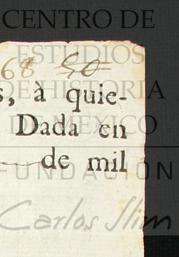 CENTRO DE
ESTUDIOS
68 50
DE HISTORIA
s, à quie-
DE MEXICO
Dada en
de mil
FUNDACIÓN
Carlos Slim